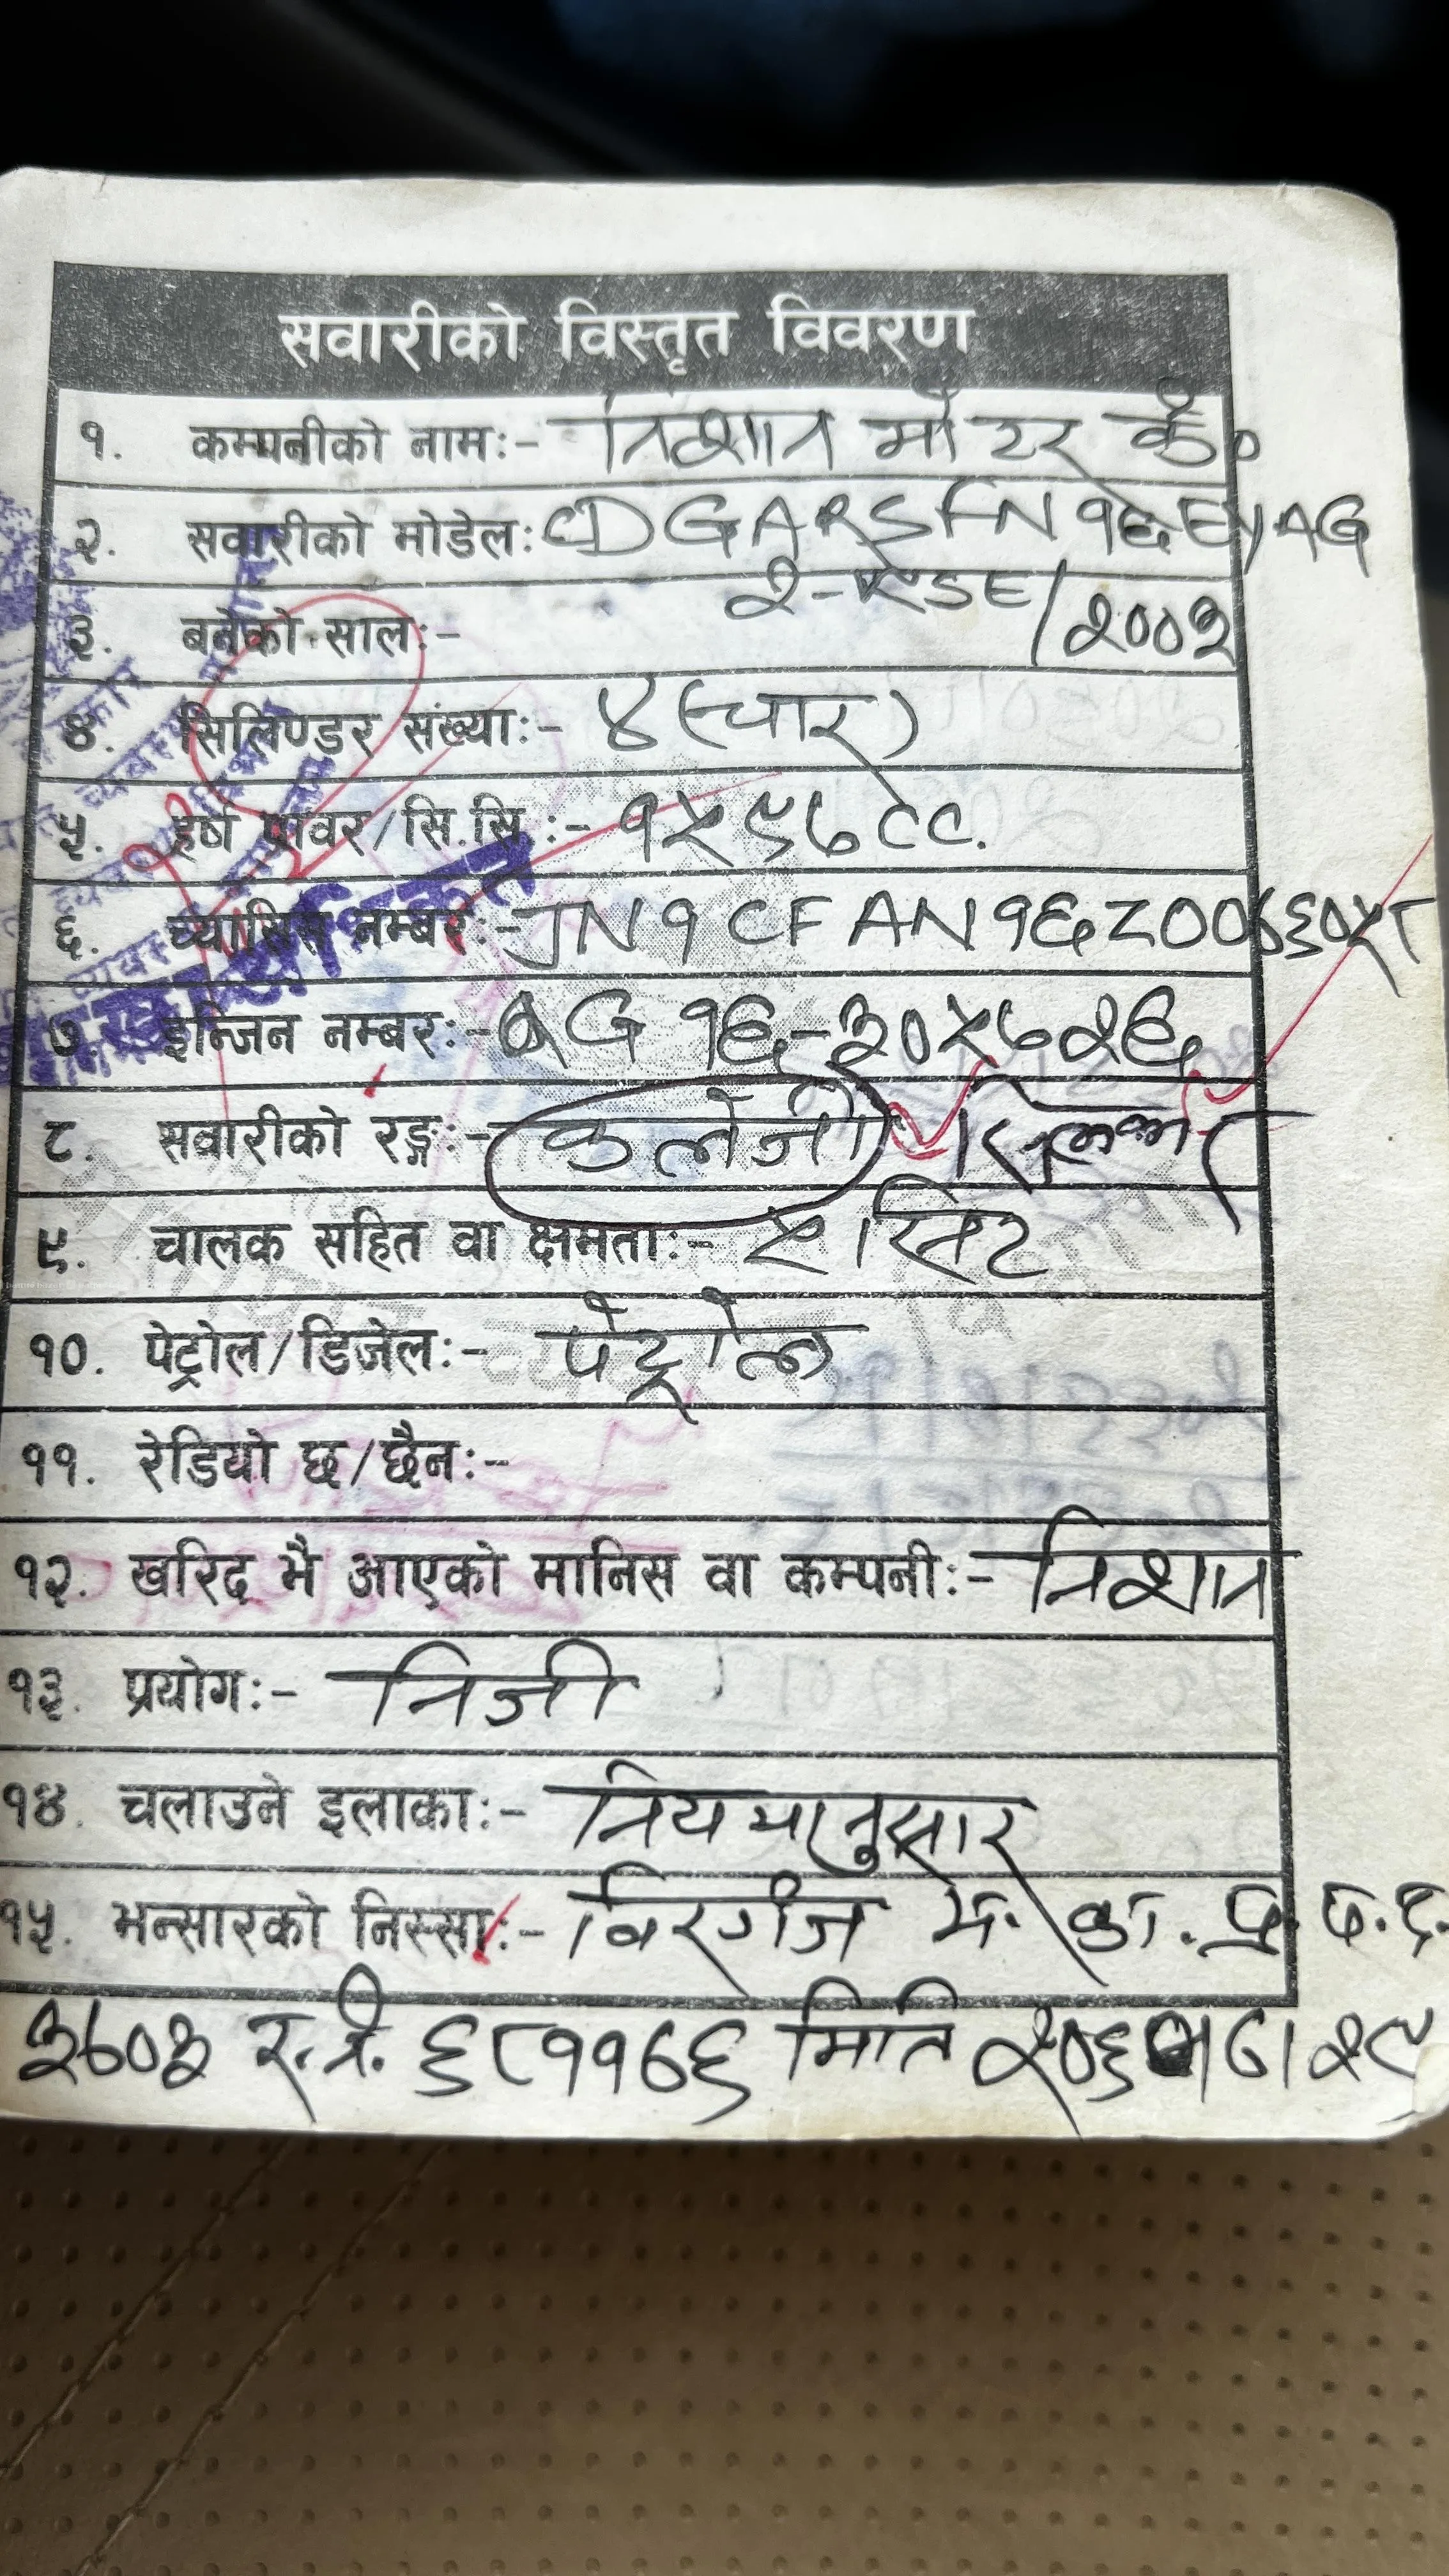 सवारीको विस्तृत विवरण
१. कम्पनीको नाम:- निशान मोटर कं०
२. सवारीको मोडेल: CDGARSFN१६EYAG
२-RSE/२००३
३. बनेको साल:-
४. सिलिण्डर संख्या:- ४ (चार)
५. हर्ष पावर/सि.सि.:- १५९७CC.
६. च्यासिस नम्बर:- JN१CFAN१६Z००७९०५८
७. इन्जिन नम्बर:- QG१६-३०५७२६
८. सवारीको रङ्ग:- कलेजी सिल्भर
९. चालक सहित वा क्षमता:- ५ सिट
१०. पेट्रोल/डिजेल:- पेट्रोल
११. रेडियो छ/छैन:-
१२. खरिद भै आएको मानिस वा कम्पनी:- निशान
१३. प्रयोग:- निजी
१४. चलाउने इलाका:- नियमानुसार
१५. भन्सारको निस्सा:- विरगंज भ. का. प्र. प. द.
३७०३ र.नं. ६८११७६ मिति